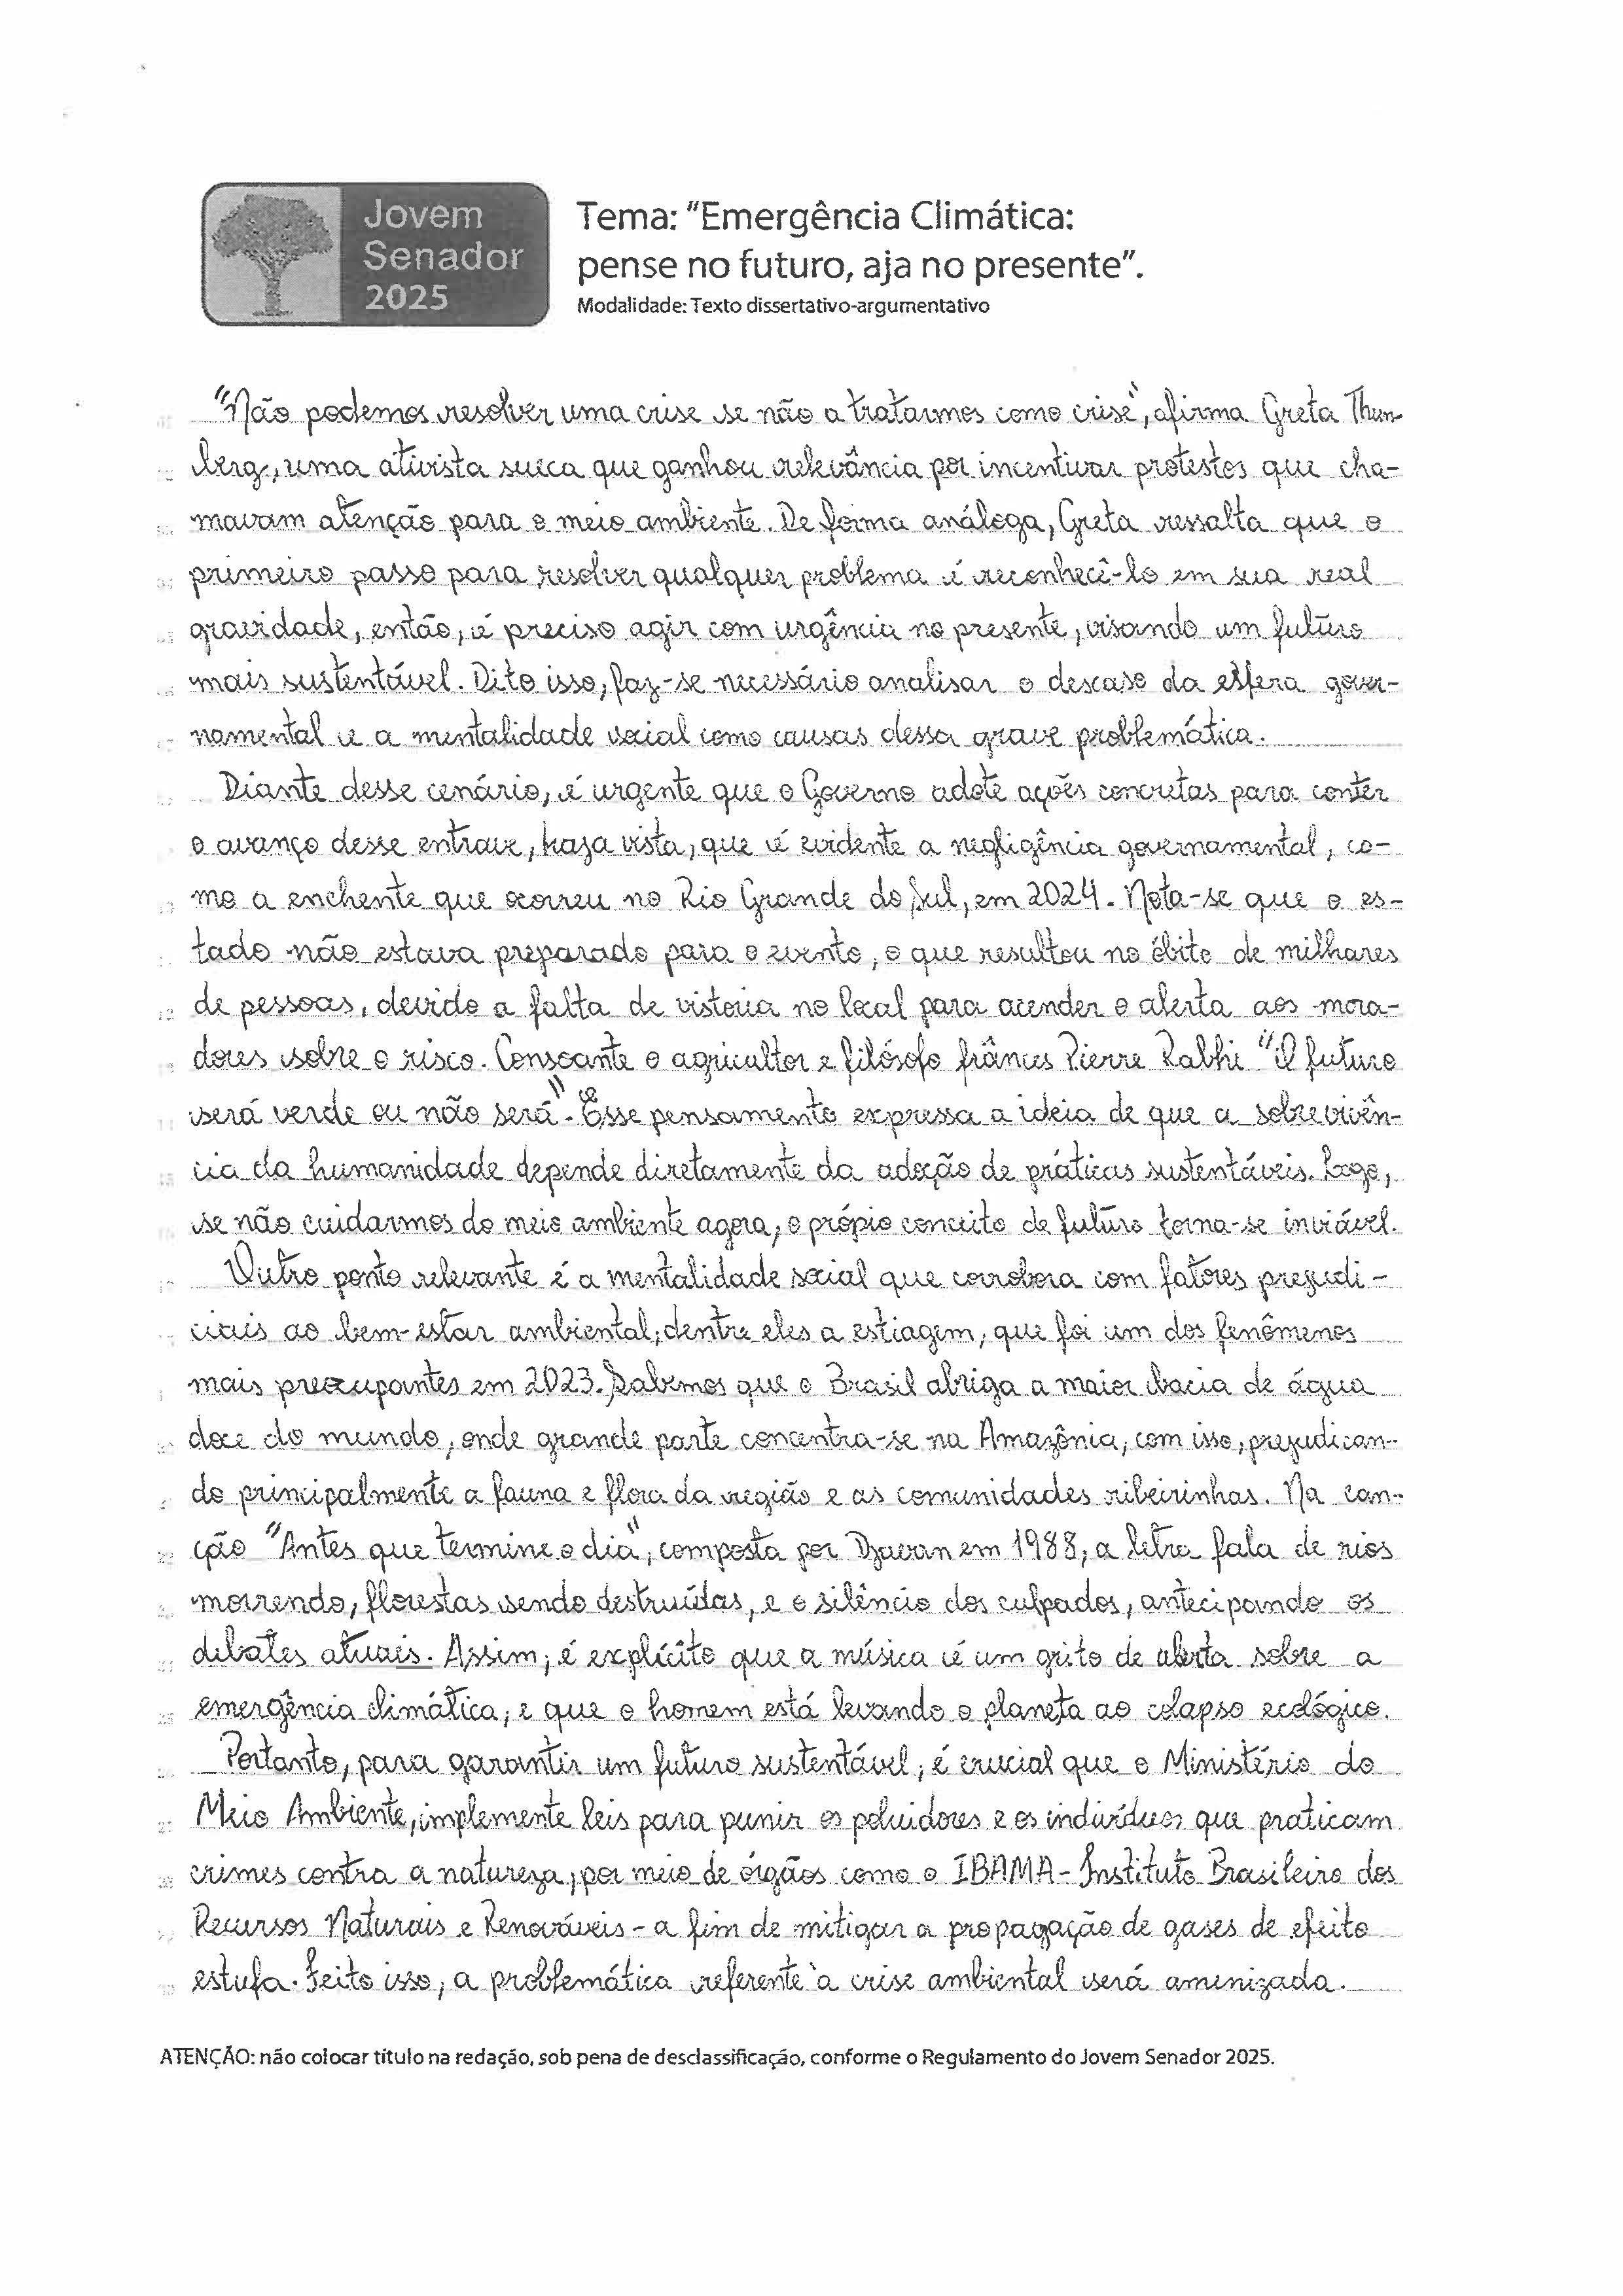 Jovem
Senador
2025
Tema: "Emergência Climática:
pense no futuro, aja no presente".
Modalidade: Texto dissertativo-argumentativo
"Não podemos resolver uma crise se não a tratarmos como crise", afirma Greta Thun-
berg, uma ativista sueca que ganhou relevância por incentivar protestos que cha-
mavam atenção para o meio ambiente. De forma análoga, Greta ressalta que o
primeiro passo para resolver qualquer problema é reconhecê-lo em sua real
gravidade, então, é preciso agir com urgência no presente, visando um futuro
mais sustentável. Dito isso, faz-se necessário analisar o descaso da esfera gover-
namental e a mentalidade social como causas dessa grave problemática.
Diante desse cenário, é urgente que o Governo adote ações concretas para conter
o avanço desse entrave, haja vista, que é evidente a negligência governamental, co-
mo a enchente que ocorreu no Rio Grande do Sul, em 2024. Nota-se que o es-
tado não estava preparado para o evento, o que resultou no óbito de milhares
de pessoas, devido a falta de vistoria no local para acender o alerta aos mora-
dores sobre o risco. Consoante o agricultor e filósofo frânces Pierre Rabhi "O futuro
será verde ou não será". Esse pensamento expressa a ideia de que a sobrevivên-
cia da humanidade depende diretamente da adoção de práticas sustentáveis. Logo,
se não cuidarmos do meio ambiente agora, o própio conceito de futuro torna-se inviável.
Outro ponto relevante é a mentalidade social que corrobora com fatores prejudi-
ciais ao bem-estar ambiental, dentre eles a estiagem, que foi um dos fenômenos
mais preocupantes em 2023. Sabemos que o Brasil abriga a maior bacia de água
doce do mundo, onde grande parte concentra-se na Amazônia, com isso, prejudican-
do principalmente a fauna e flora da região e as comunidades ribeirinhas. Na can-
ção "Antes que termine o dia", composta por Djavan em 1988, a letra fala de rios
morrendo, florestas sendo destruídas, e o silêncio dos culpados, antecipando os
debates atuais. Assim, é explícito que a música é um grito de alerta sobre a
emergência climática, e que o homem está levando o planeta ao colapso ecológico.
Portanto, para garantir um futuro sustentável, é crucial que o Ministério do
Meio Ambiente, implemente leis para punir os poluidores e os indivíduos que praticam
crimes contra a natureza, por meio de órgãos como o IBAMA - Instituto Brasileiro dos
Recursos Naturais e Renováveis - a fim de mitigar a propagação de gases de efeito
estufa. Feito isso, a problemática referente à crise ambiental será amenizada.
ATENÇÃO: não colocar título na redação, sob pena de desclassificação, conforme o Regulamento do Jovem Senador 2025.